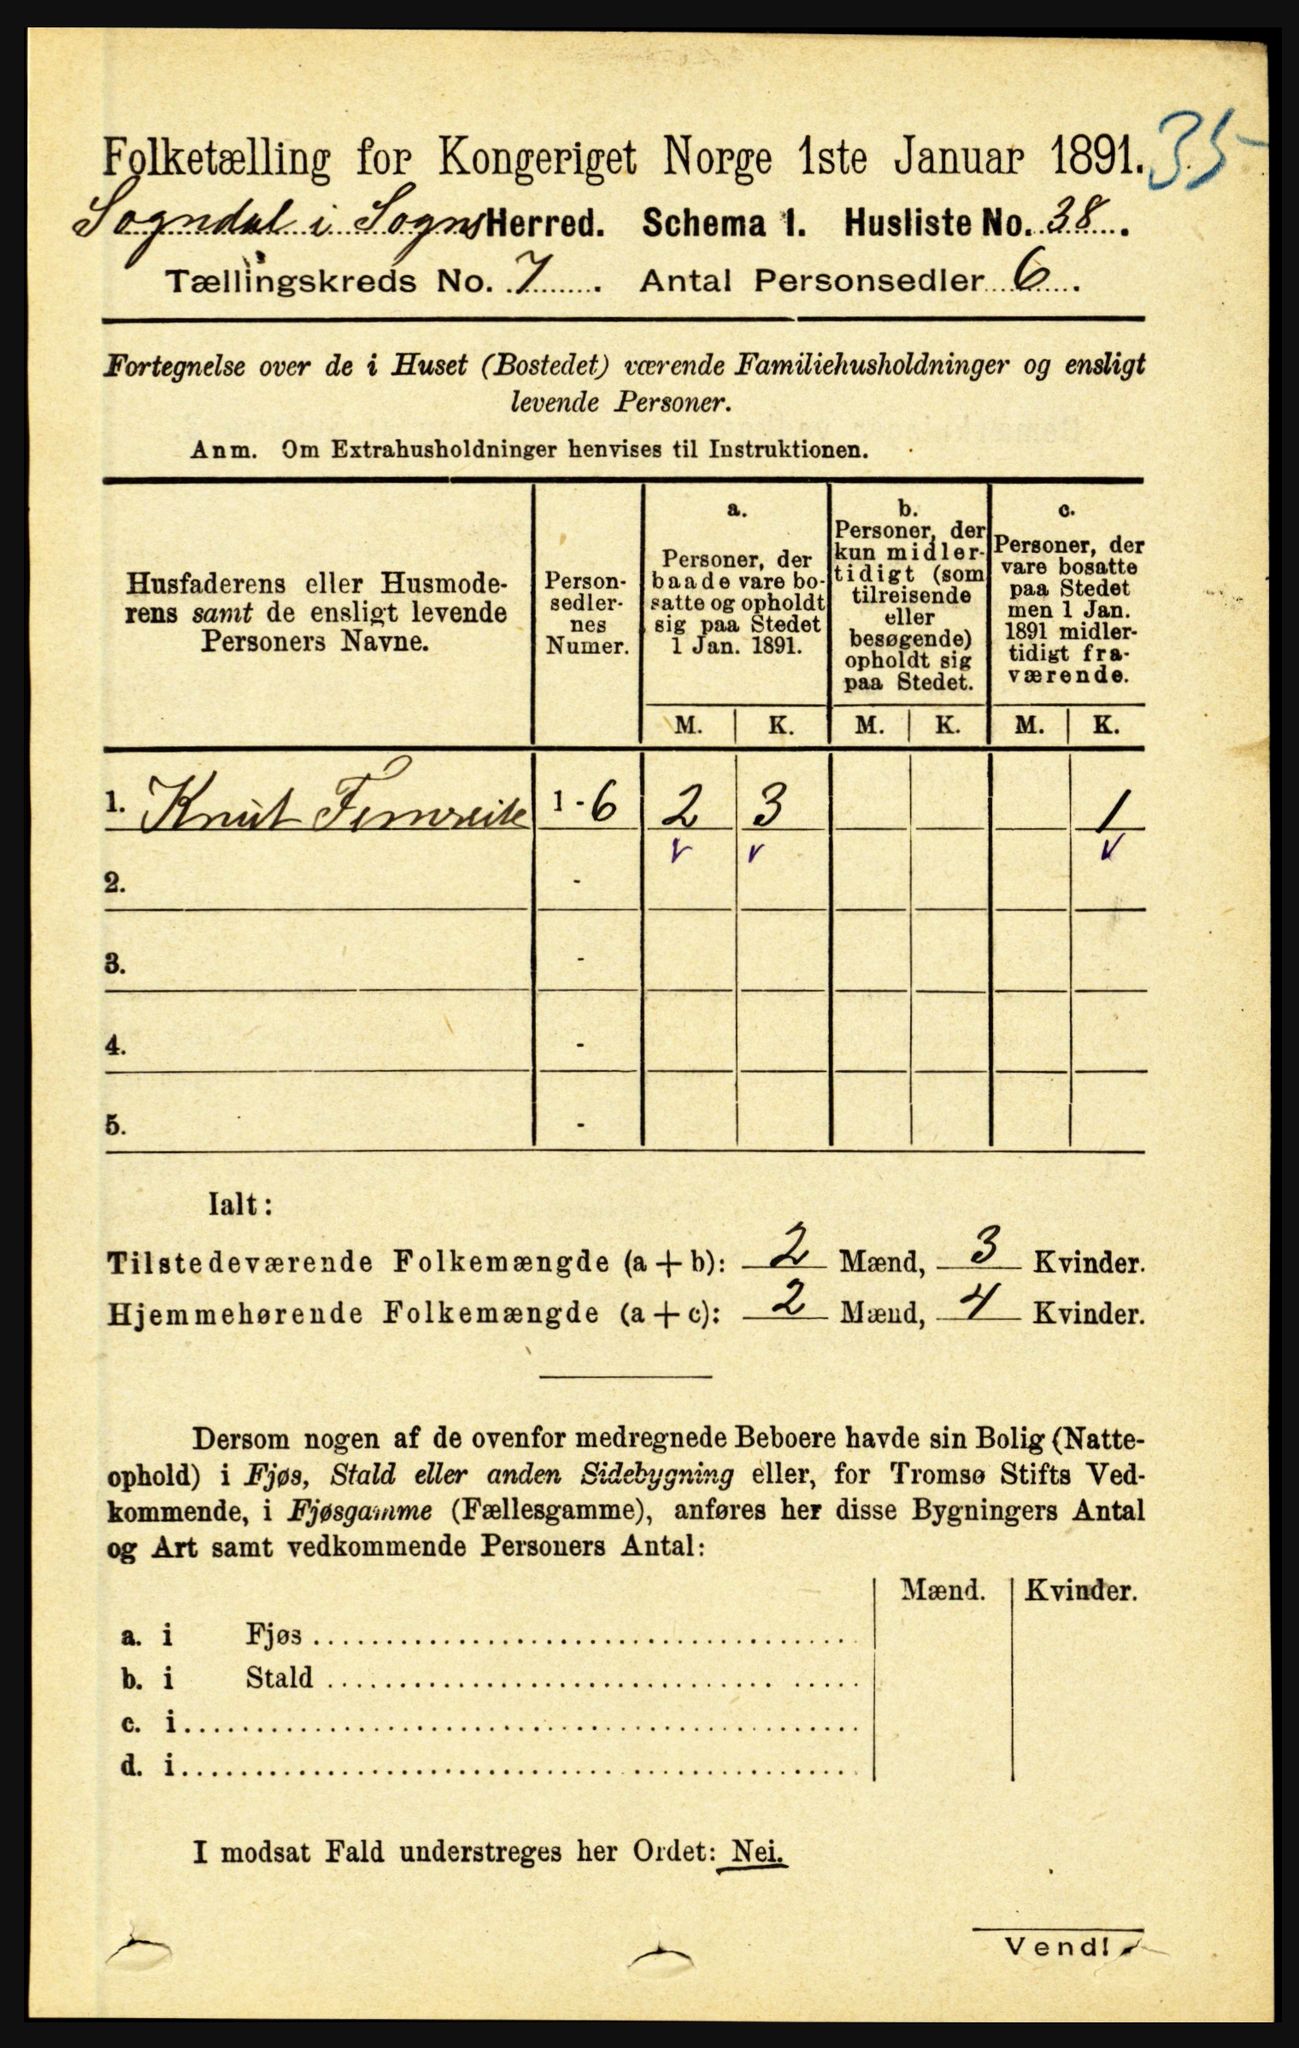 Folketælling for Kongeriget Norge 1ste Januar 1891. 35
Sogndal i Sogns Herred. Schema 1. Husliste No. 38.
Tællingskreds No. 7. Antal Personsedler 6.
Fortegnelse over de i Huset (Bostedet) værende Familiehusholdninger og ensligt
levende Personer.
Anm. Om Extrahusholdninger henvises til Instruktionen.
Husfaderens eller Husmode-
rens samt de ensligt levende
Personers Navne.
Person-
sedler-
nes
Numer.
a.
Personer, der
baade vare bo-
satte og opholdt
sig paa Stedet
1 Jan. 1891.
b.
Personer, der
kun midler-
tidigt (som
tilreisende
eller
besøgende)
opholdt sig
paa Stedet.
c.
Personer, der
vare bosatte
paa Stedet
men 1 Jan.
1891 midler-
tidigt fra-
værende.
M. K. M. K. M. K.
1. Knut Fimreite 1 - 6 2 3 1
2. -
3. -
4. -
5. -
Ialt:
Tilstedeværende Folkemængde (a + b): 2 Mænd, 3 Kvinder.
Hjemmehørende Folkemængde (a + c): 2 Mænd, 4 Kvinder.
Dersom nogen af de ovenfor medregnede Beboere havde sin Bolig (Natte-
ophold) i Fjøs, Stald eller anden Sidebygning eller, for Tromsø Stifts Ved-
kommende, i Fjøsgamme (Fællesgamme), anføres her disse Bygningers Antal
og Art samt vedkommende Personers Antal:
Mænd. Kvinder.
a. i Fjøs
b. i Stald
c. i
d. i
I modsat Fald understreges her Ordet: Nei.
Vend!